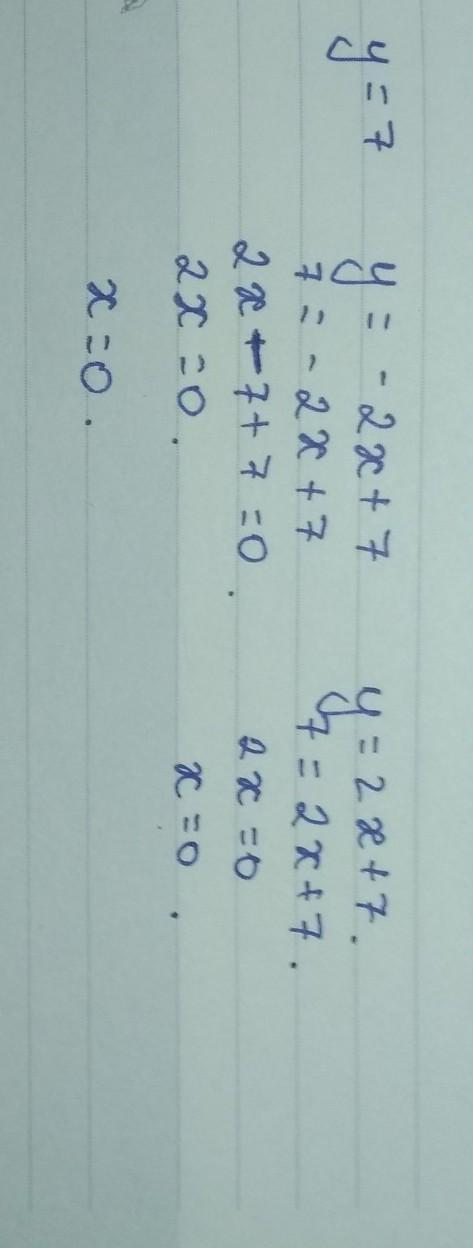 y = 7
y = - 2x + 7
7 = - 2x + 7
2x - 7 + 7 = 0.
2x = 0.
x = 0.
y = 2x + 7.
7 = 2x + 7.
2x = 0
x = 0.